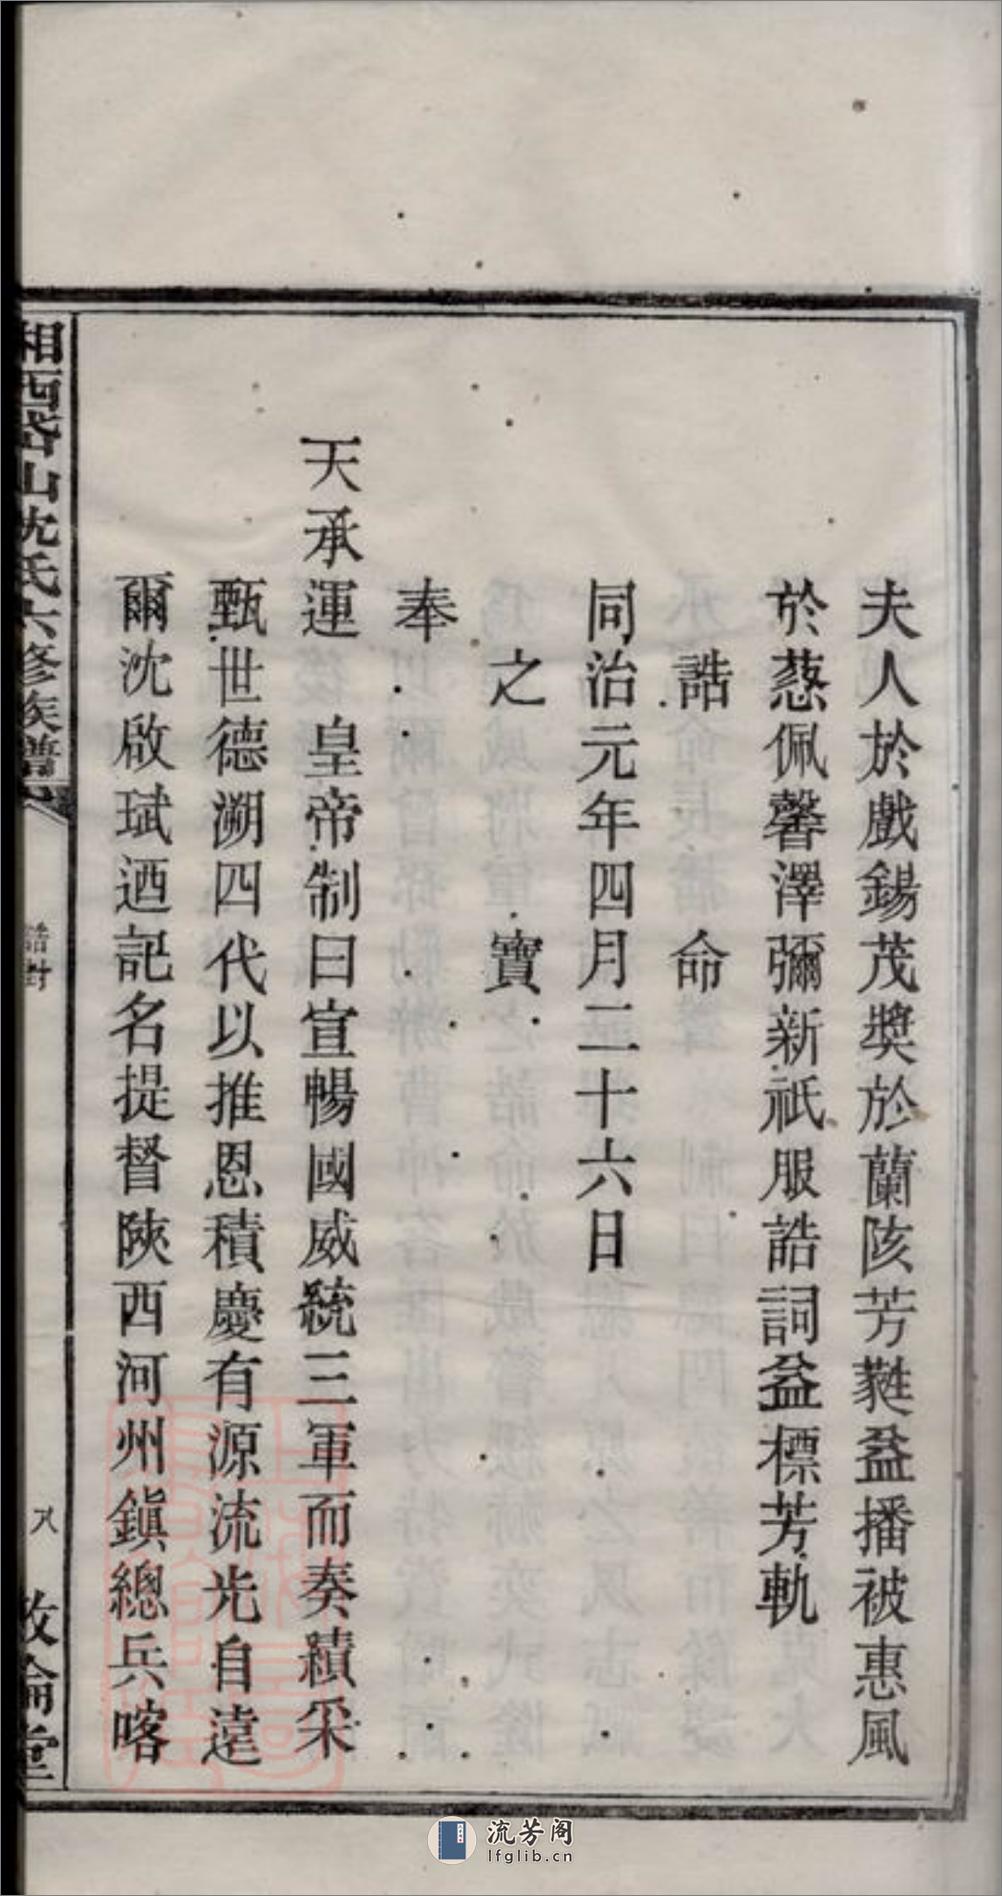 夫人於戲錫茂奬於蘭陔芳蕤益播被惠風
於蒑佩馨澤彌新祇服誥詞益標芳軌
誥命
同治元年四月二十六日
之寶
奉
天承運皇帝制曰宣暢國威統三軍而奏蹟采
甄世德溯四代以推恩積慶有源流光自遠
爾沈啟珷迺記名提督陝西河州鎭總兵喀
湘西岱山沈氏六修族譜
誥封
八
敦倫堂
流芳阁
lfglib.cn